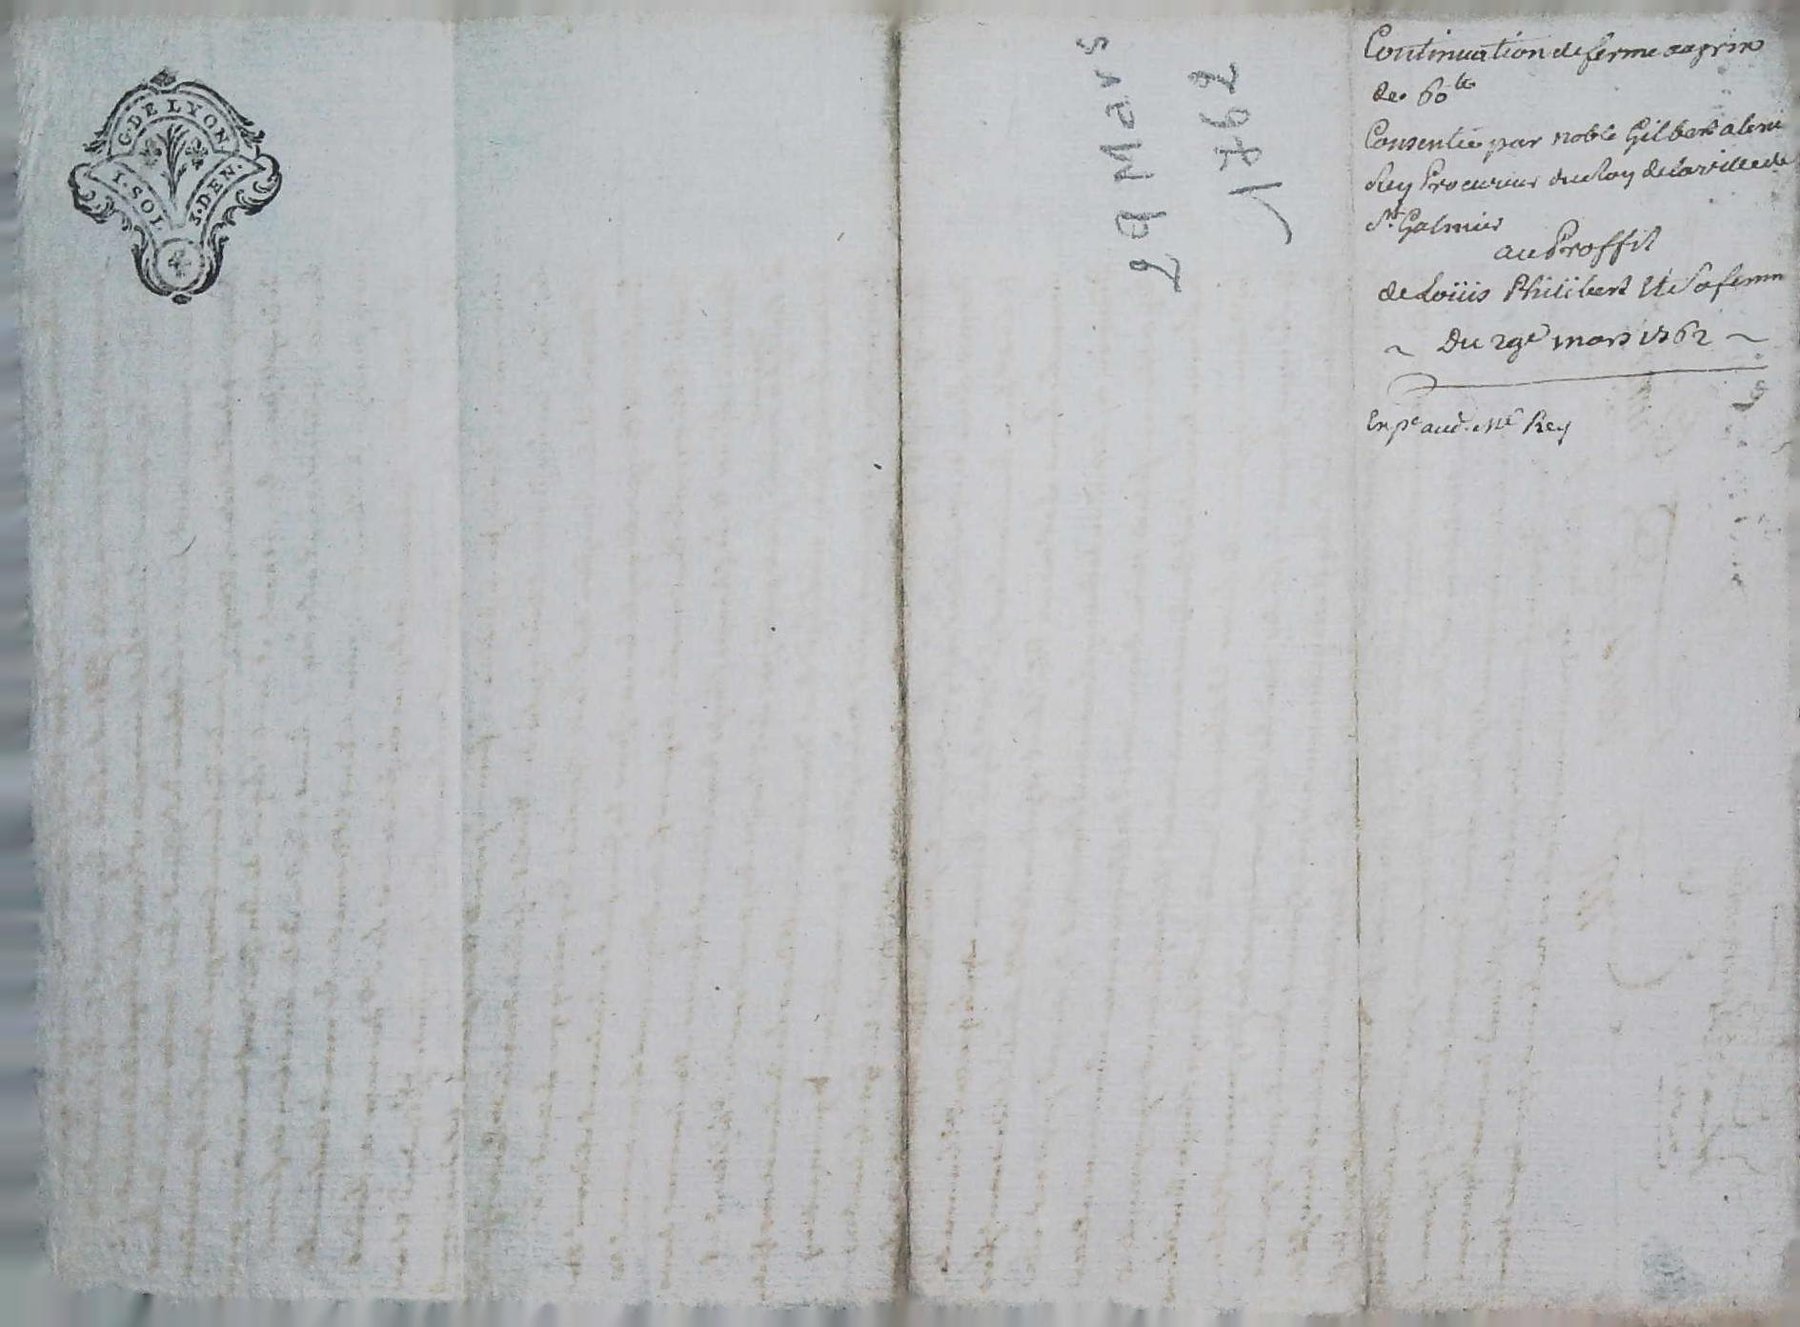 G. DE LYON
1. SOL 3. DEN.
29 Mars
1762
Continuation de ferme au prix
de 60 lt
Consentie par noble Gilbert
Rey Procureur du Roy de la ville de
St. Galmier
au Proffit
de Loüis Philibert Et Sa femme
~ Du 29e mars 1762 ~
Exp.e aud. Me Rey